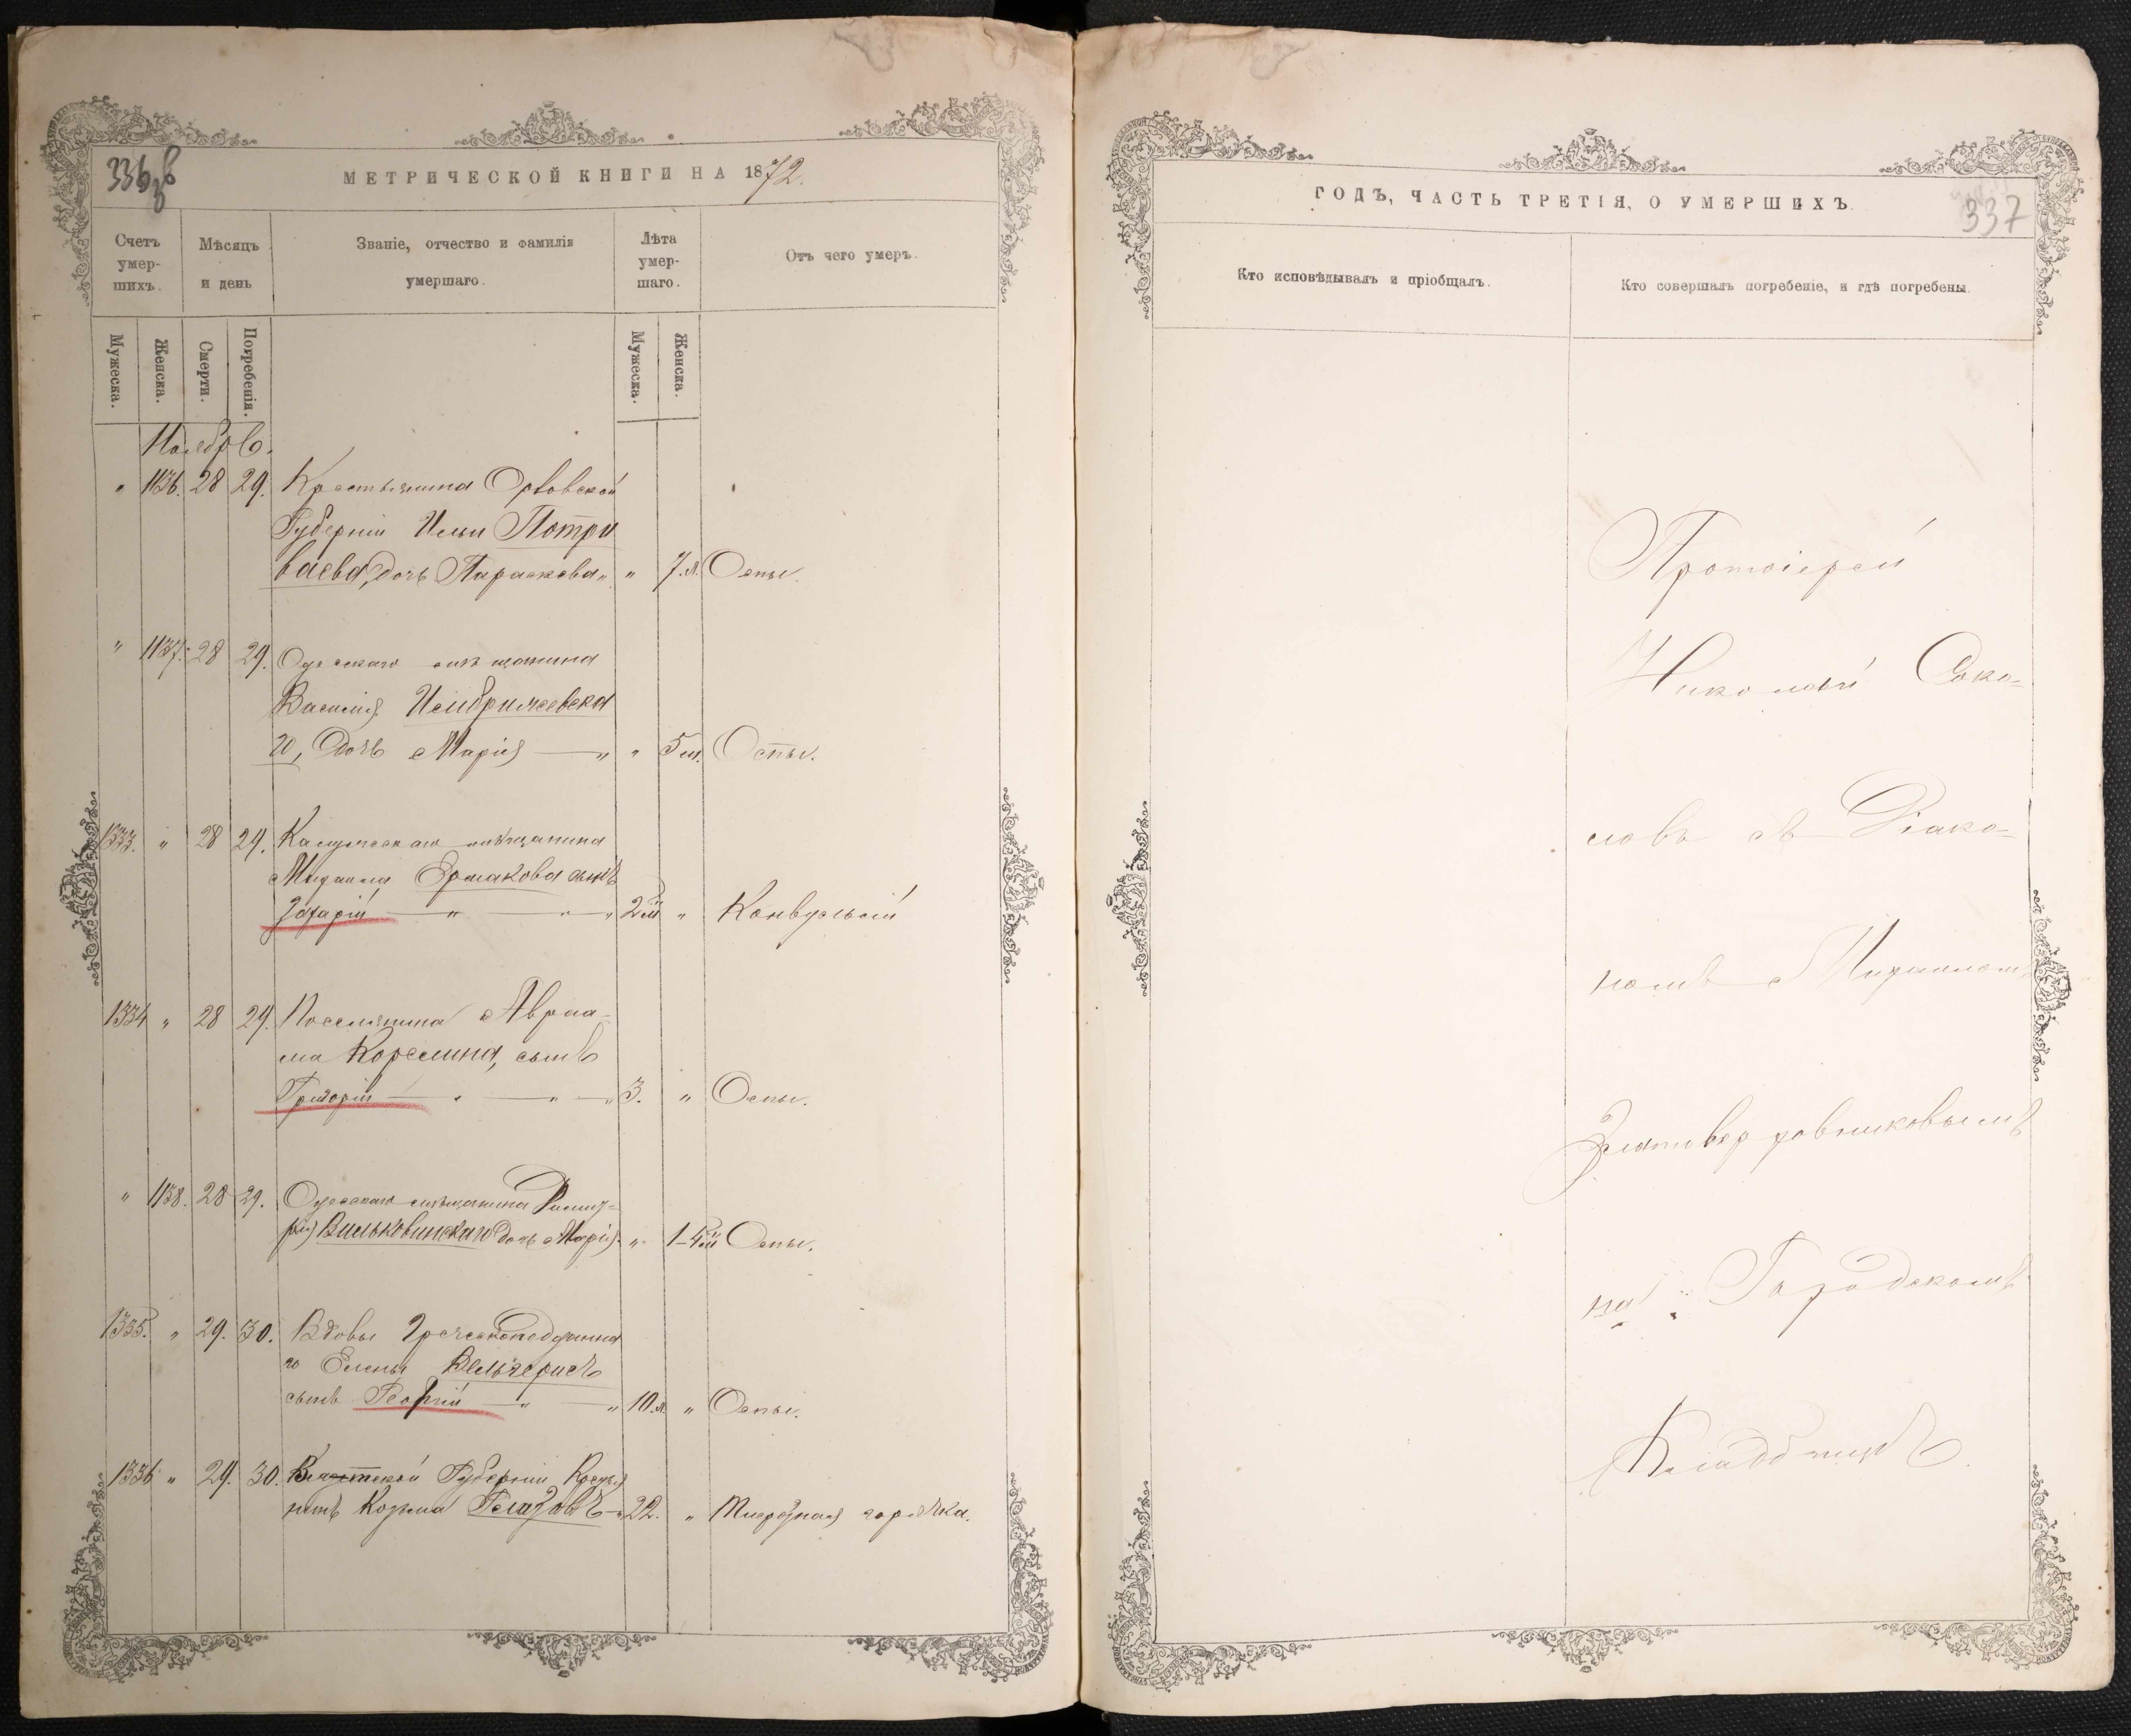 336 об
МЕТРИЧЕСКОЙ КНИГИ НА 1872.
Счетъ умер- шихъ.
Мѣсяцъ и день
Званіе, отчество и фамилія умершаго.
Лѣта умер- шаго.
Отъ чего умеръ.
Мужеска.
Женска.
Смерти.
Погребенія.
Мужеска.
Женска.
Ноябрь.
" 1136. 28 29. Крестьянина Орловской
Губерніи Ильи Потри
ваева, дочь Параскева " " 7.л. Оспы.
" 1137. 28 29. Одесскаго мѣщанина
Василія
го, дочь Марія — " " 5 м. Оспы.
1333. " 28 29. Калужскаго мѣщанина
Михаила Ермакова сынъ
Захарій — " — " — " 2 м " Конвульсій
1334 " 28 29. Поселянина Авраа-
ма Корелина, сынъ
Григорій — " — " — " 3. " Оспы.
" 1138. 28 29. Одесскаго мѣщанина
Вильковинскаго дочь Марія. " 1-4 м Оспы.
1335. " 29. 30. Вдовы Греческоподданна
го Елены
сынъ Георгій — " — " 10.л. " Оспы.
1336 " 29. 30. Вятской Губерніи Кресья
нинъ Козьма Глазовъ — " 22. " горячка.
ГОДЪ, ЧАСТЬ ТРЕТІЯ, О УМЕРШИХЪ.
337
Кто исповѣдывалъ и пріобщалъ.
Кто совершалъ погребеніе, и гдѣ погребены.
Протоіерей
Николай Соко-
ловъ съ Діако-
номъ Михаиломъ
на Городскомъ
Кладбищѣ.